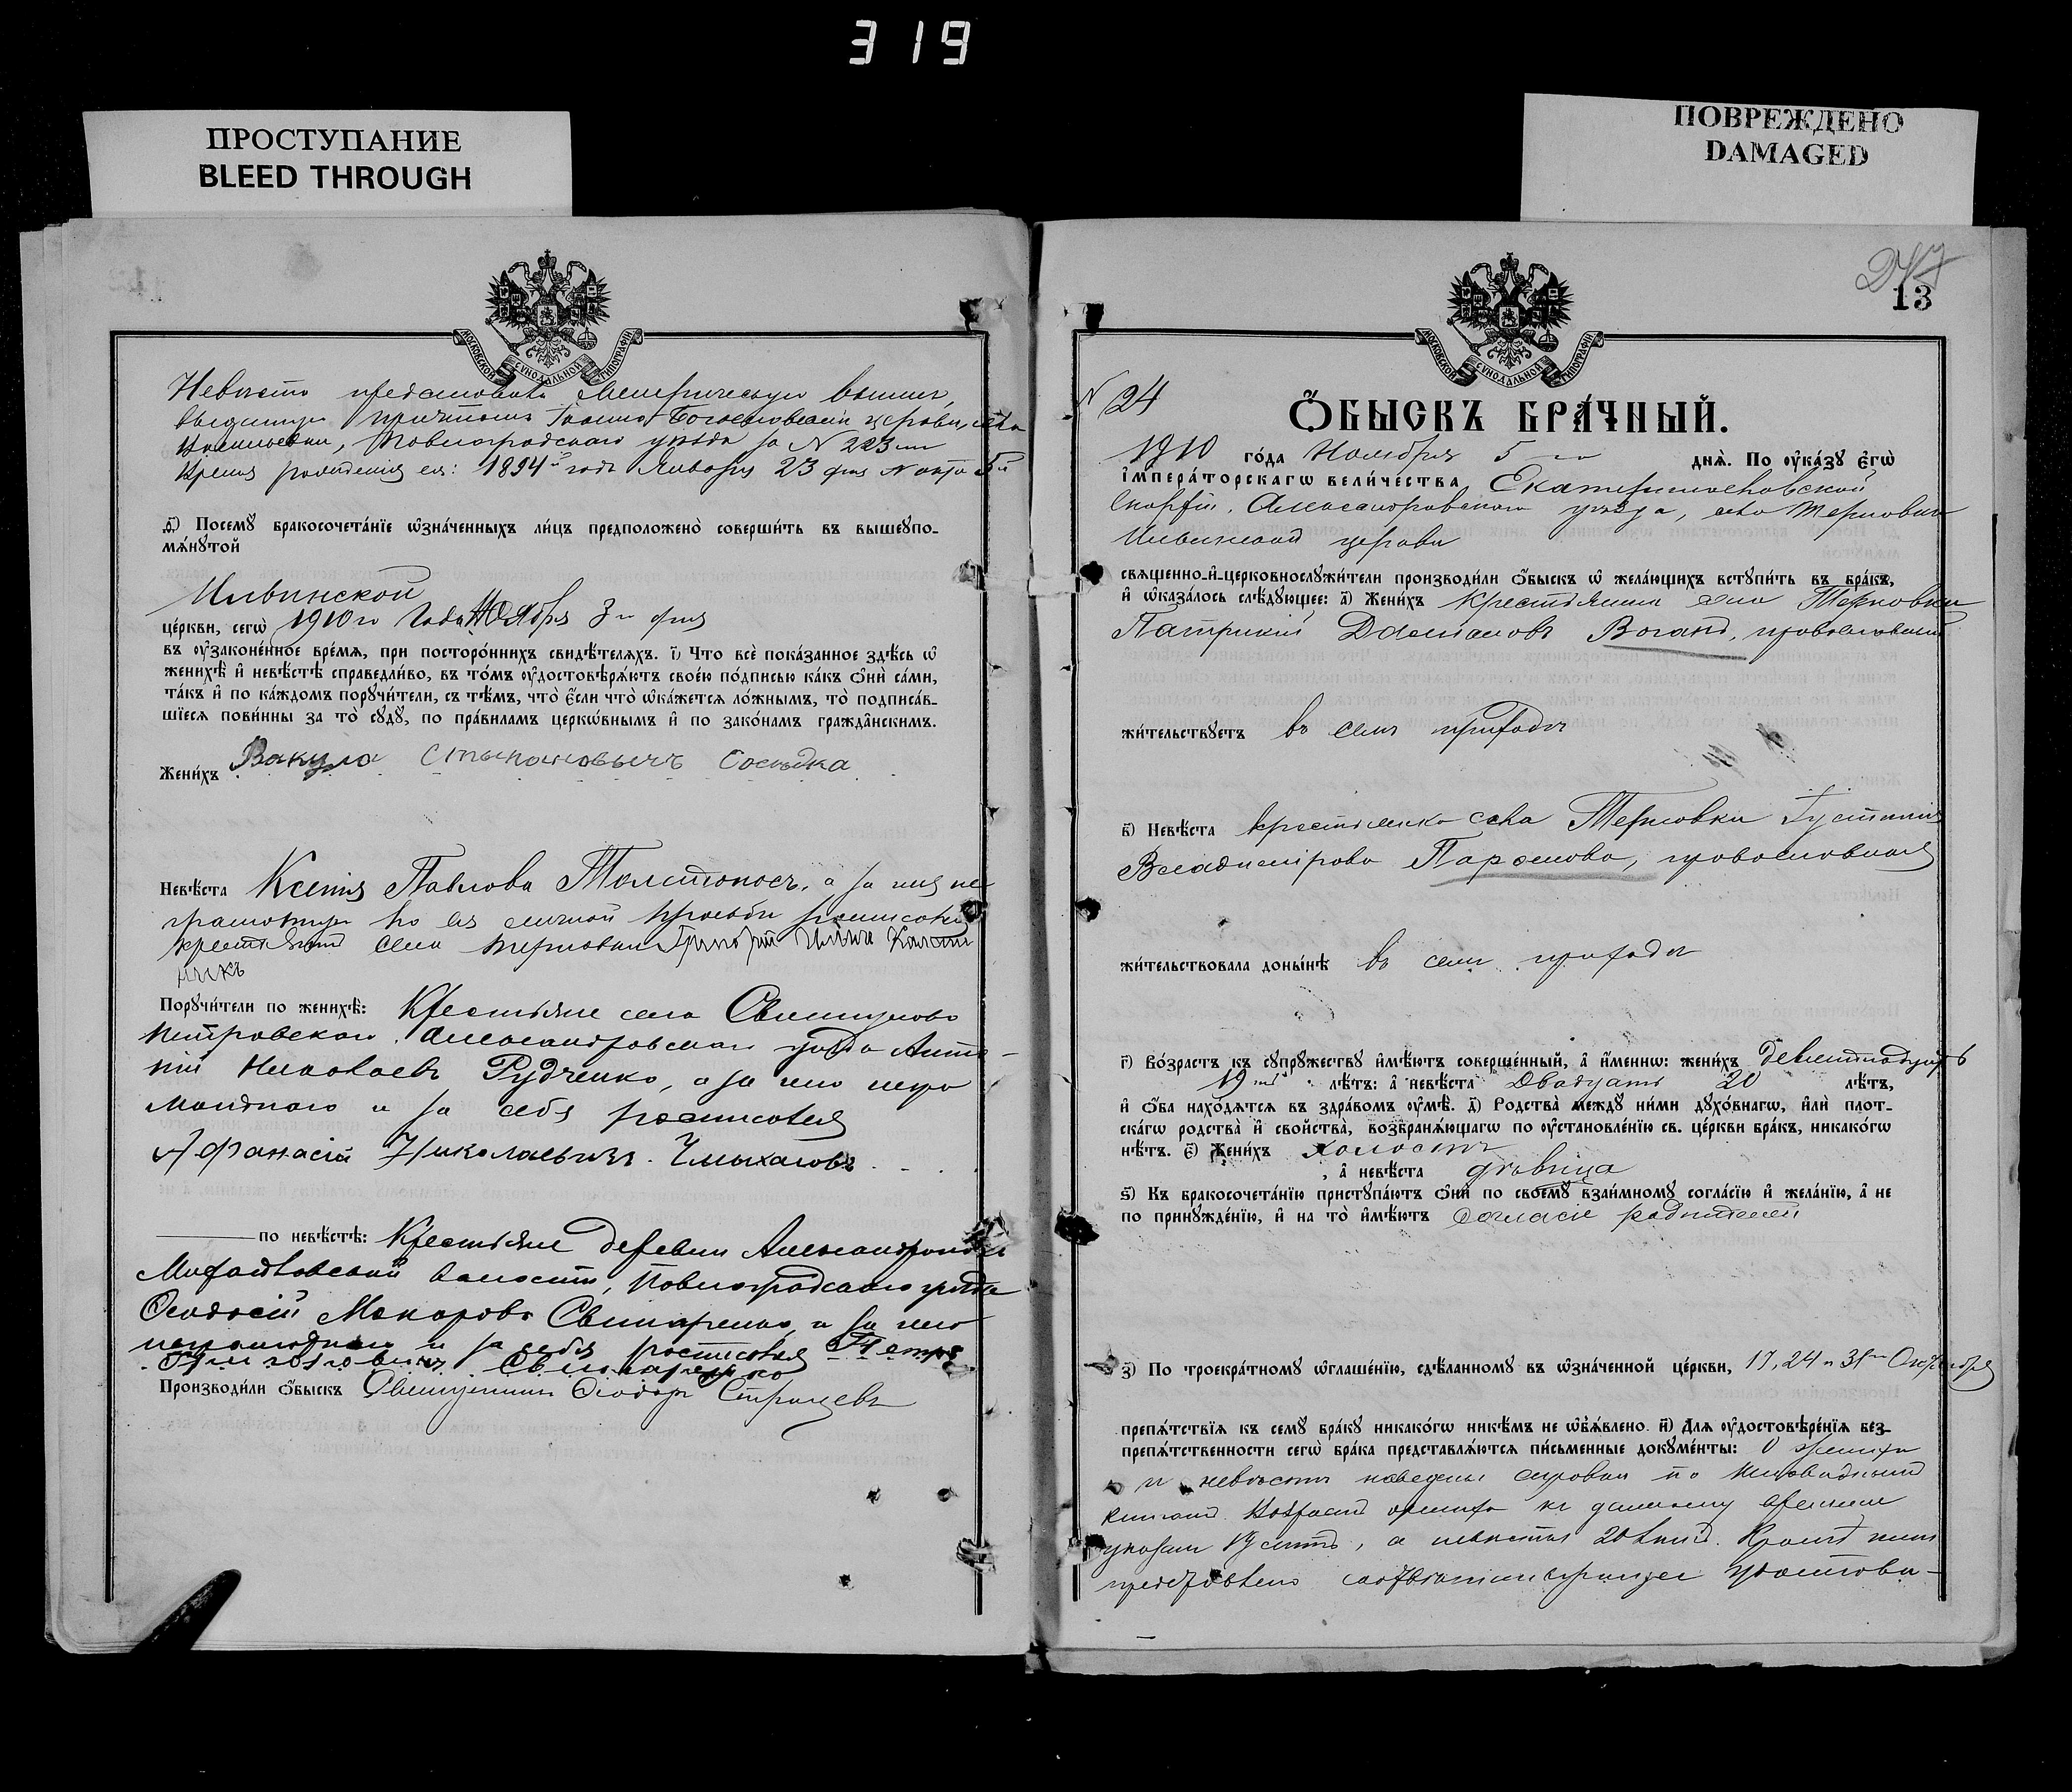 319
ПРОСТУПАНИЕ
BLEED THROUGH
ПОВРЕЖДЕНО
DAMAGED
МОСКОВСКОЙ СѴНОДАЛЬНОЙ ТИПОГРАФІИ
метрическую
церкви, села
Павлоградскаго уѣзда за N 223
Время рожденія ея: 1894 годъ Января 23 дня N акта 5й
д҃) Посемꙋ бракосочета́нїе ѡ҆зна́ченныхъ ли́цъ предположено̀ соверши́ть въ вышеꙋпо-
мѧ́нꙋтой
Ильинской
це́ркви, сегѡ̀ 1910 го Года Ноября 7 го дня
въ ѹ҆законе́нное вре́мѧ, при посторо́ннихъ свидѣ́телѧхъ. і҃) Что всѐ пока́занное здѣ́сь ѡ҆
женихѣ̀ и҆ невѣ́стѣ справедли́во, въ то́мъ ѹ҆достовѣрѧ́ютъ свое́ю по́дписью ка́къ ѻ҆нѝ са́ми,
та́къ и҆ по ка́ждомъ порꙋчи́тели, съ тѣ́мъ, что̀ є҆́сли что̀ ѡ҆ка́жетсѧ ло́жнымъ, то̀ подписа́в-
шїесѧ пови́нны за то̀ сꙋдꙋ̀, по пра́виламъ церкѡ́внымъ и҆ по зако́намъ гражда̑нскимъ.
Жени́хъ Вакула Стыпановычъ Сосѣдка
Невѣ́ста Ксенія Павлова Толстоносъ, а за нея не
грамотную по ея личной просьбѣ росписался
крестьянинъ села Терновки Григорій Калаш
никъ
Порꙋчи́тели по женихѣ̀: Крестьяне села
Петровскаго Александровскаго уѣзда Анто-
ній Николаевъ Рудченко, а за него негра
мотнаго и за себя росписовся
Афанасій Николаевичъ
по невѣ́стѣ: Крестьяне деревни
волости, Павлоградскаго уѣзда
Ѳеодосій Макаровъ Свинаренко, а за него
неграмотнаго и за себя росписовся Петръ
Свинаренко
Производи́ли ѻ҆́быскъ Священникъ Ѳеодоръ
247
13
N 24
Ѻ҆́БЫСКЪ БРА́ЧНЫЙ.
1910 го́да Ноября 5 го днѧ̀. По ѹ҆ка́зꙋ є҆гѡ̀
і҆мпера́торскагѡ вели́чества Екатеринославской
Епархіи, Александровскаго уѣзда, села Терновки
Ильинской церкви
свѧще́нно-и҆-церковнослꙋжи́тели производи́ли ѻ҆́быскъ ѡ҆ жела́ющихъ встꙋпи́ть въ бра́къ,
и҆ ѡ҆каза́лось слѣ́дꙋющее: а҃) Жени́хъ крестьянинъ села Терновки
Патрикій православный
жи́тельствꙋетъ въ семъ приходѣ
в҃) Невѣ́ста крестьянка села Терновки Іустинія
Владимірова православная
жи́тельствовала донынѣ̀ въ семъ приходѣ
г҃) Во́зрастъ къ сꙋпрꙋжествꙋ и҆мѣ́ютъ соверше́нный, а҆ и҆́меннѡ: жени́хъ девятнадцать
19 лѣ́тъ: а҆ невѣ́ста двадцать 20 лѣ́тъ,
и҆ ѻ҆́ба нахо́дѧтсѧ въ здра́вомъ ѹ҆мѣ̀. д҃) Родства̀ междꙋ ни́ми дꙋхо́внагѡ, и҆лѝ плот-
ска́гѡ родства̀ и҆ сво́йства, возбранѧ́ющагѡ по ѹ҆становле́нїю св. це́ркви бра́къ, никако́гѡ
нѣ́тъ. є҃) Жени́хъ холостъ
, а҆ невѣ́ста дѣвица
ѕ҃) Къ бракосочета́нїю пристꙋпа́ютъ ѻ҆нѝ по своемꙋ̀ взаи́мномꙋ согла́сїю и҆ жела́нїю, а҆ не
по принꙋжде́нїю, и҆ на то̀ и҆мѣ́ютъ согласіе родителей
з҃) По троекра́тномꙋ ѡ҆глаше́нїю, сдѣ́ланномꙋ въ ѡ҆зна́ченной це́ркви, 17, 24 и 31 го Октября
препѧ́тствїѧ къ семꙋ̀ бра́кꙋ никако́гѡ никѣ́мъ не ѡ҆б̾ѧ́влено. и҃) Для ѹ҆достовѣре́нїѧ без-
препѧ́тственности сегѡ̀ бра́ка представлѧ́ютсѧ пи́сьменные докꙋме́нты: О женихѣ
и невѣстѣ наведены справки по исповѣднымъ
книгамъ. Возрастъ жениха къ данному времени
указанъ 19 лѣтъ, а невѣсты 20 лѣтъ. Кромѣ того
представлено